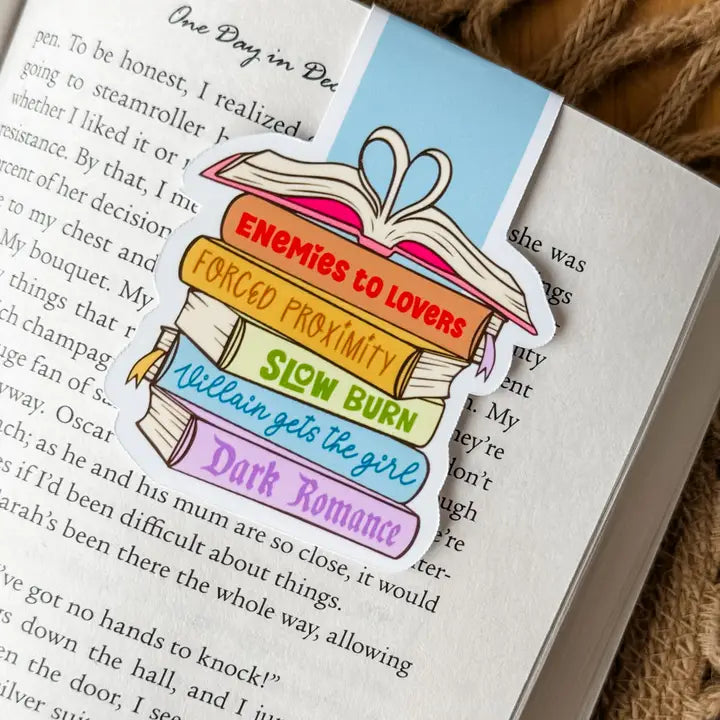 One Day in De
pen. To be honest, I realized
going to steamroller h
whether I liked it or
resistance. By that, I me
rcent of her decision
to my chest and
My bouquet. My
things that r
ch champag
uge fan of s
yway. Oscar
ch; as he and his mum are so close, it would
s if I'd been difficult about things.
arah's been there the whole way, allowing
've got no hands to knock!"
s down the hall, and I ju
en the door, I see
ilver sui
she was
ngs
nty
ent
n. My
ney're
don't
ugh
e're
ter-
ENEMIES TO LOVERS
FORCED PROXIMITY
SLOW BURN
Villain gets the girl
Dark Romance